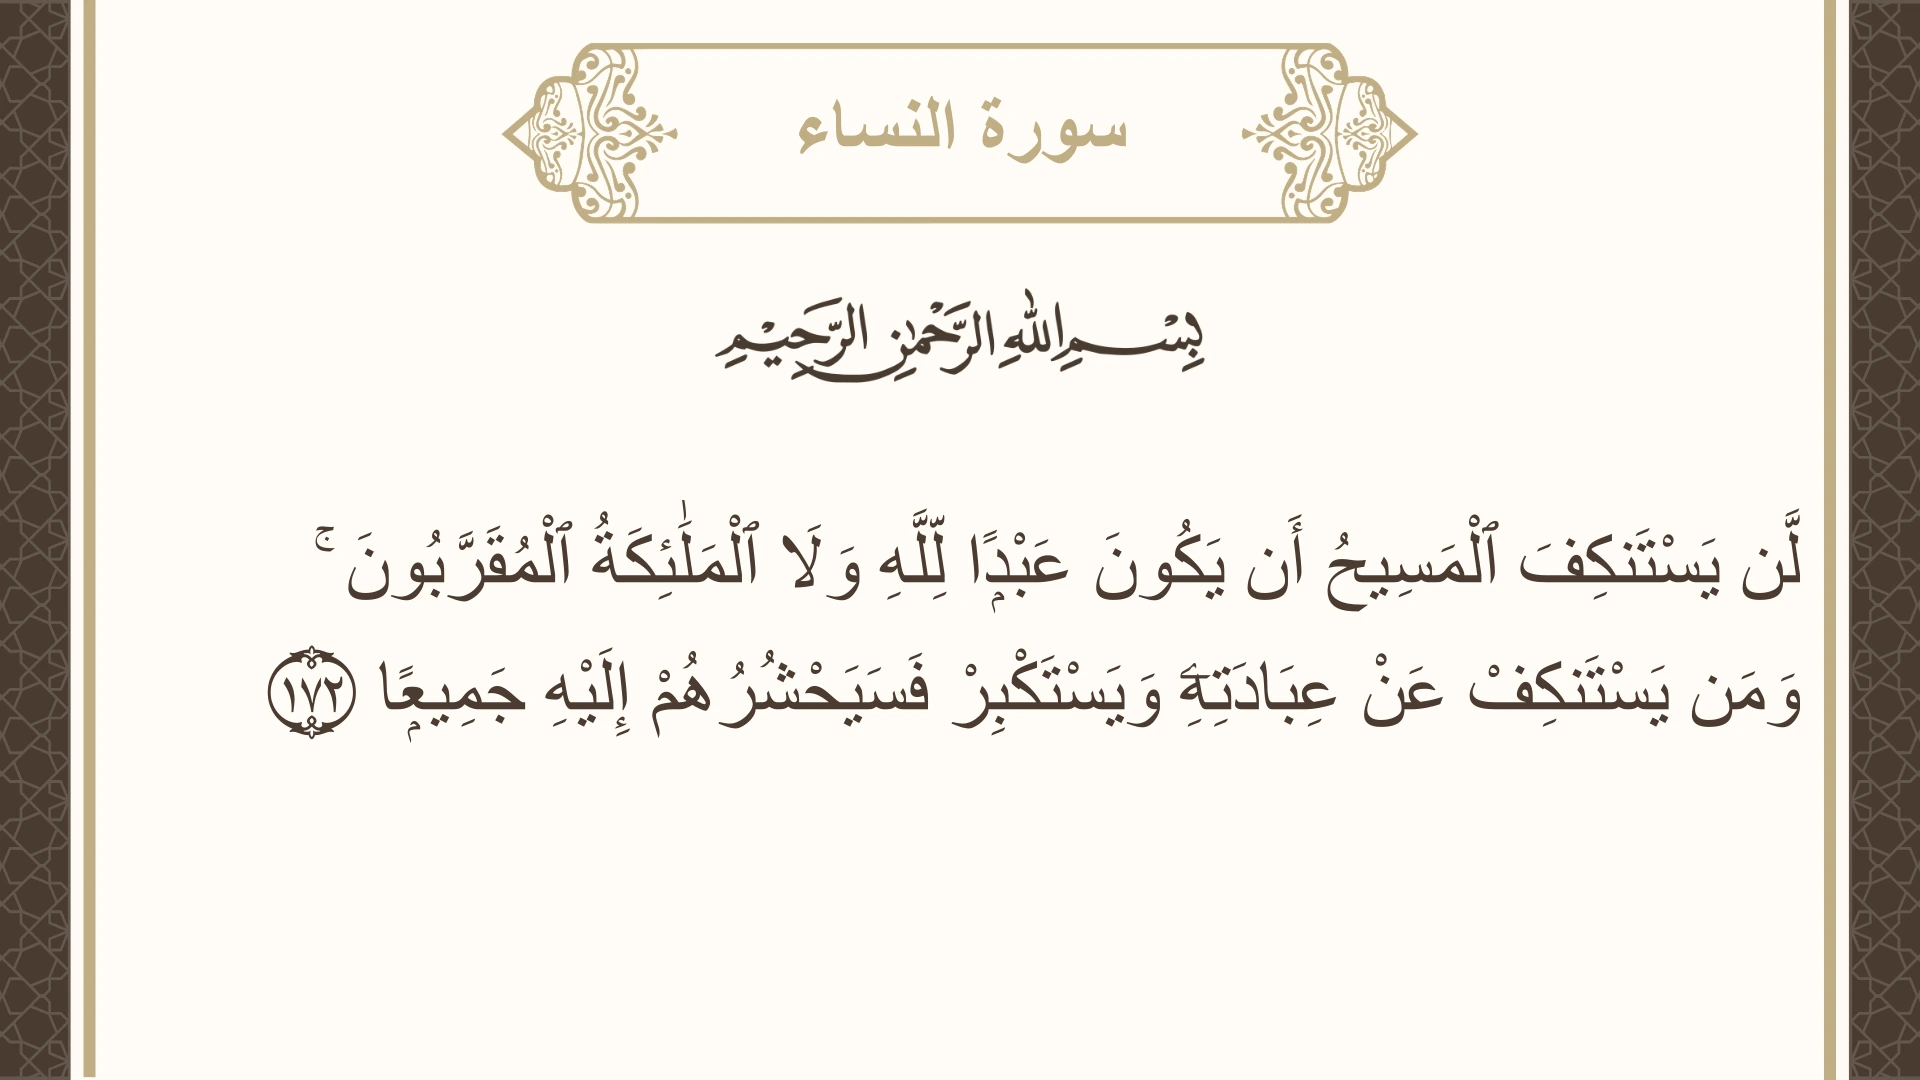 سورة النساء
بِسْمِ اللهِ الرَّحْمٰنِ الرَّحِيْمِ
لَّن يَسْتَنكِفَ ٱلْمَسِيحُ أَن يَكُونَ عَبْدًۭا لِّلَّهِ وَلَا ٱلْمَلَـٰٓئِكَةُ ٱلْمُقَرَّبُونَ ۚ
وَمَن يَسْتَنكِفْ عَنْ عِبَادَتِهِۦ وَيَسْتَكْبِرْ فَسَيَحْشُرُهُمْ إِلَيْهِ جَمِيعًۭا ١٧٢